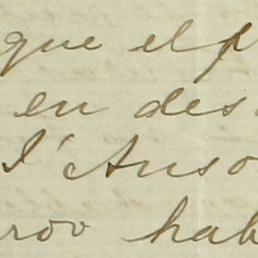 que el p
en des
I' Anso
rov hab